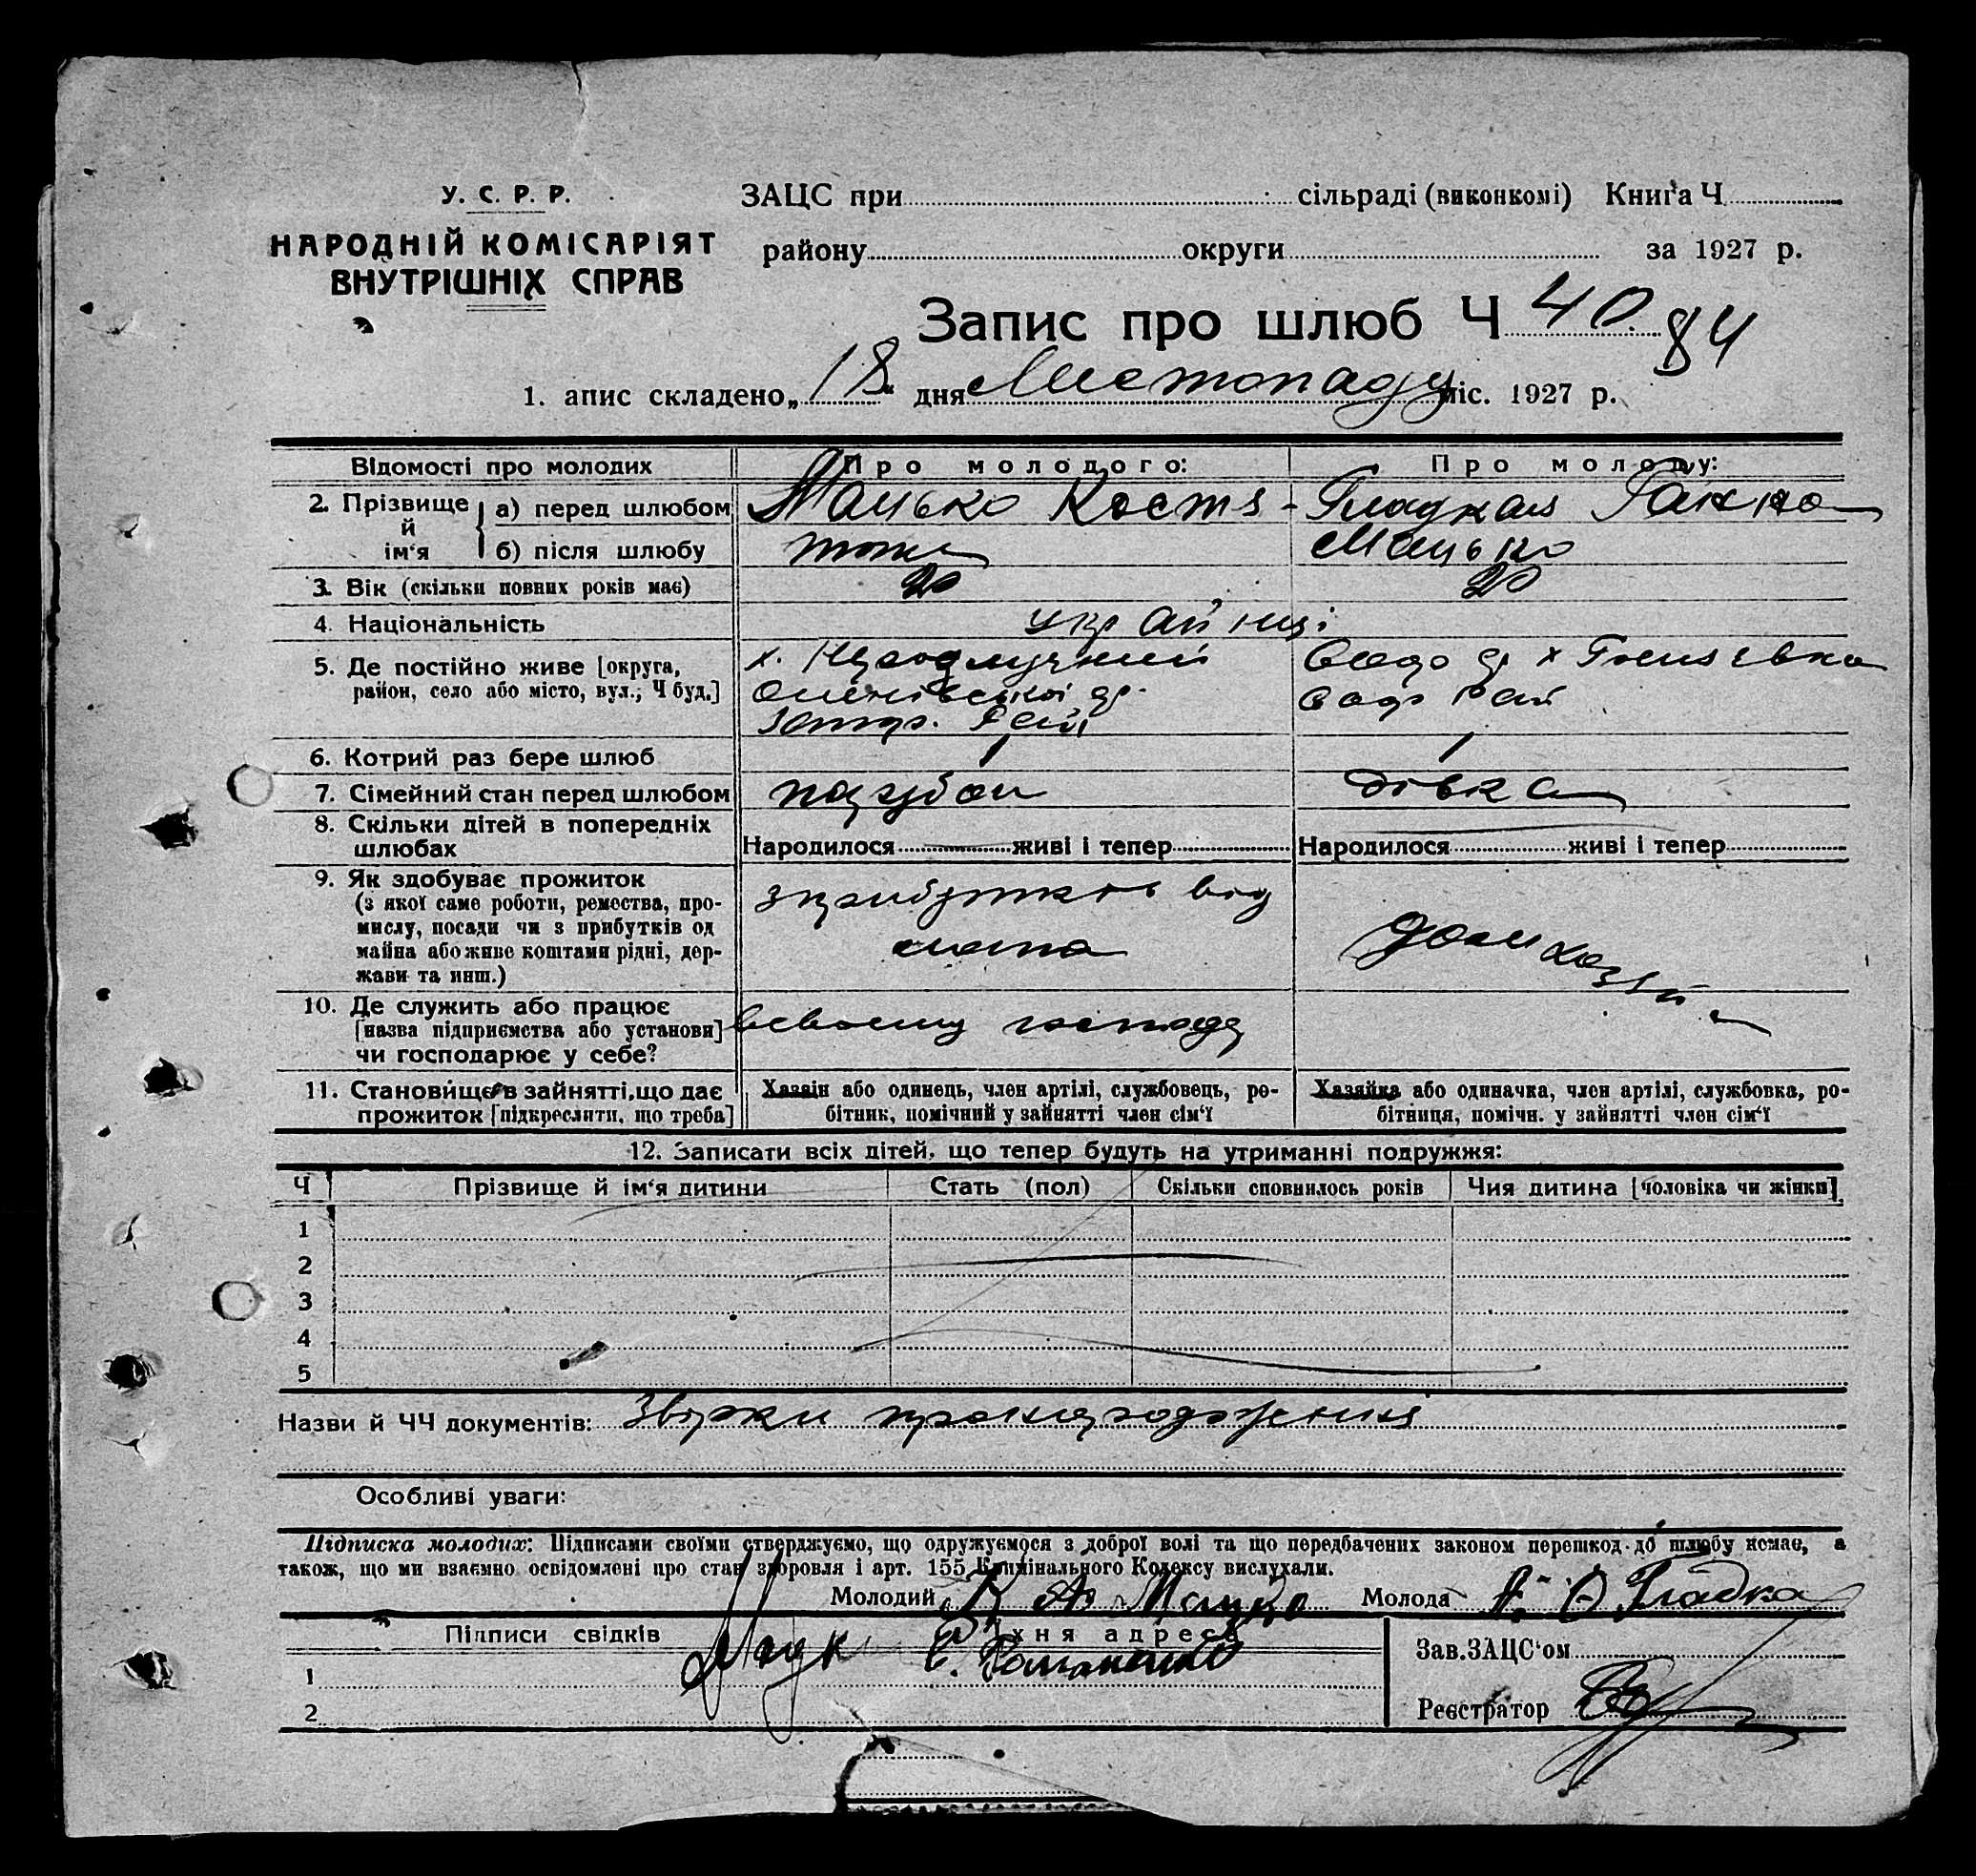 У. С. Р. Р.
НАРОДНІЙ КОМІСАРІЯТ
ВНУТРІШНІХ СПРАВ
ЗАЦС при сільраді (виконкомі) Книга Ч
району округи за 1927 р.
Запис про шлюб Ч 40. 84
1. апис складено „18" дня Листопаду міс. 1927 р.
Відомості про молодих Про молодого: Про молоду:
2. Прізвище й ім'я
а) перед шлюбом Мацько Костя - Гладкая Ганна
б) після шлюбу тоже Мацько
3. Вік (скільки повних років має) 20 20
4. Національність Українці
5. Де постійно живе [округа,
район, село або місто, вул., Ч буд.]
х.
6. Котрий раз бере шлюб 1 1
7. Сімейний стан перед шлюбом парубок дівка
8. Скільки дітей в попередніх
шлюбах
Народилося живі і тепер Народилося живі і тепер
9. Як здобуває прожиток
(з якої саме роботи, ремества, про-
мислу, посади чи з прибутків од
майна або живе коштами рідні, дер-
жави та инш.)
10. Де служить або працює
[назва підприємства або установи]
чи господарює у себе?
11. Становище в зайнятті, що дає
прожиток [підкреслити, що треба]
Хазяін або одинець, член артілі, службовець, ро-
бітник, помічний у зайнятті член сім'ї
Хазяйка або одиначка, член артілі, службовка, ро-
бітниця, помічн. у зайнятті член сім'ї
12. Записати всіх дітей, що тепер будуть на утриманні подружжя:
Ч Прізвище й ім'я дитини Стать (пол) Скільки сповнилось років Чия дитина [чоловіка чи жінки]
1
2
3
4
5
Назви й ЧЧ документів:
Особливі уваги:
Підписка молодих: Підписами своїми стверджуємо, що одружуємося з доброї волі та що передбачених законом перешкод до шлюбу немає, а
також, що ми взаємно освідомлені про стан здоровля і арт. 155 Кримінального Кодексу вислухали.
Молодий Мацько Молода Гладка
Підписи свідків Їхня адреса
1
2
Зав. ЗАЦС'ом
Реєстратор